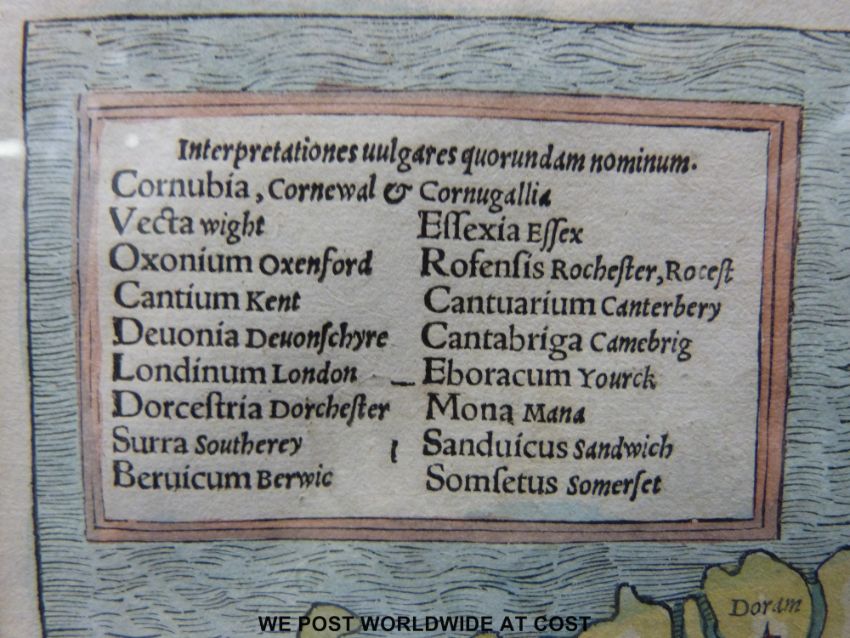 Interpretationes uulgares quorundam nominum.
Cornubia, Cornewal & Cornugallia
Vecta wight
Oxonium Oxenford
Cantium Kent
Deuonia Deuonſchyre
Londinum London
Dorceſtria Dorcheſter
Surra Southerey
Beruicum Berwic
Eſſexia Eſſex
Rofenſis Rocheſter, Roceſt
Cantuarium Canterbery
Cantabriga Camebrig
Eboracum Yourck
Mona Mana
Sanduicus Sandwich
Somſetus Somerſet
Doram
WE POST WORLDWIDE AT COST